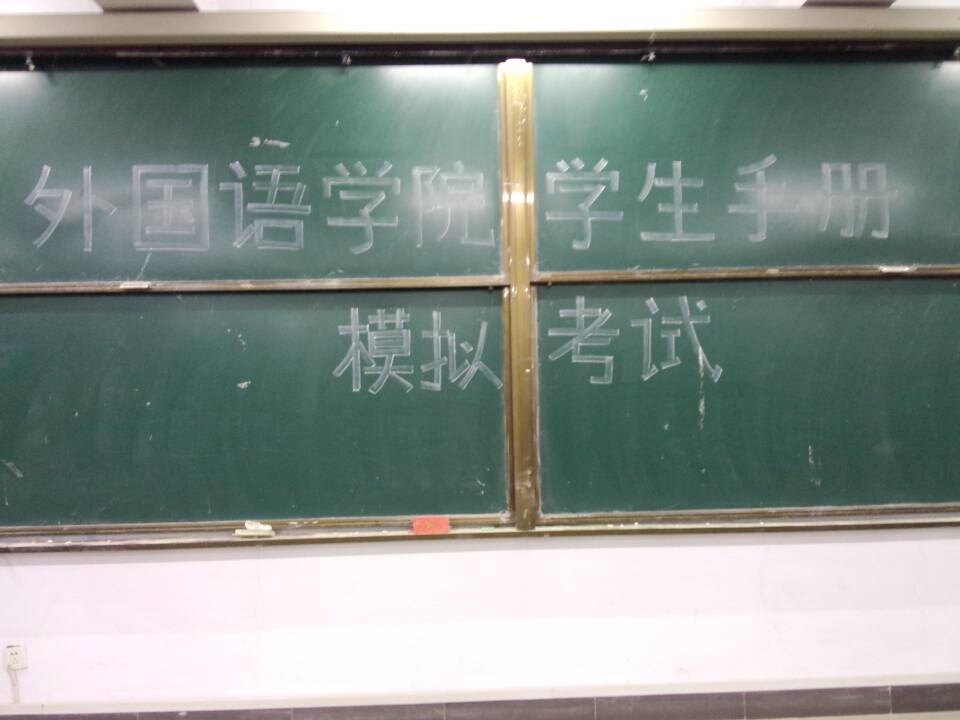 外国语学院学生手册
模拟考试